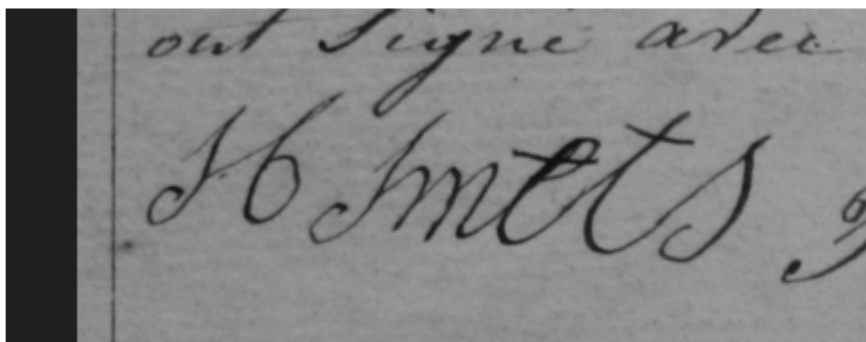 ont signé avec
H Smets